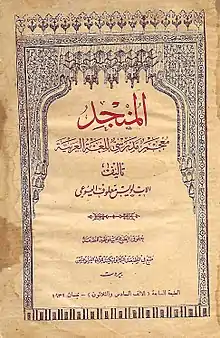 المنجد
معجم مدرسي للغة العربية
تأليف
الاب لويس معلوف اليسوعي
بيروت
الطبعة السابعة (الالف السادس والثلاثون) - نيسان ١٩٣١